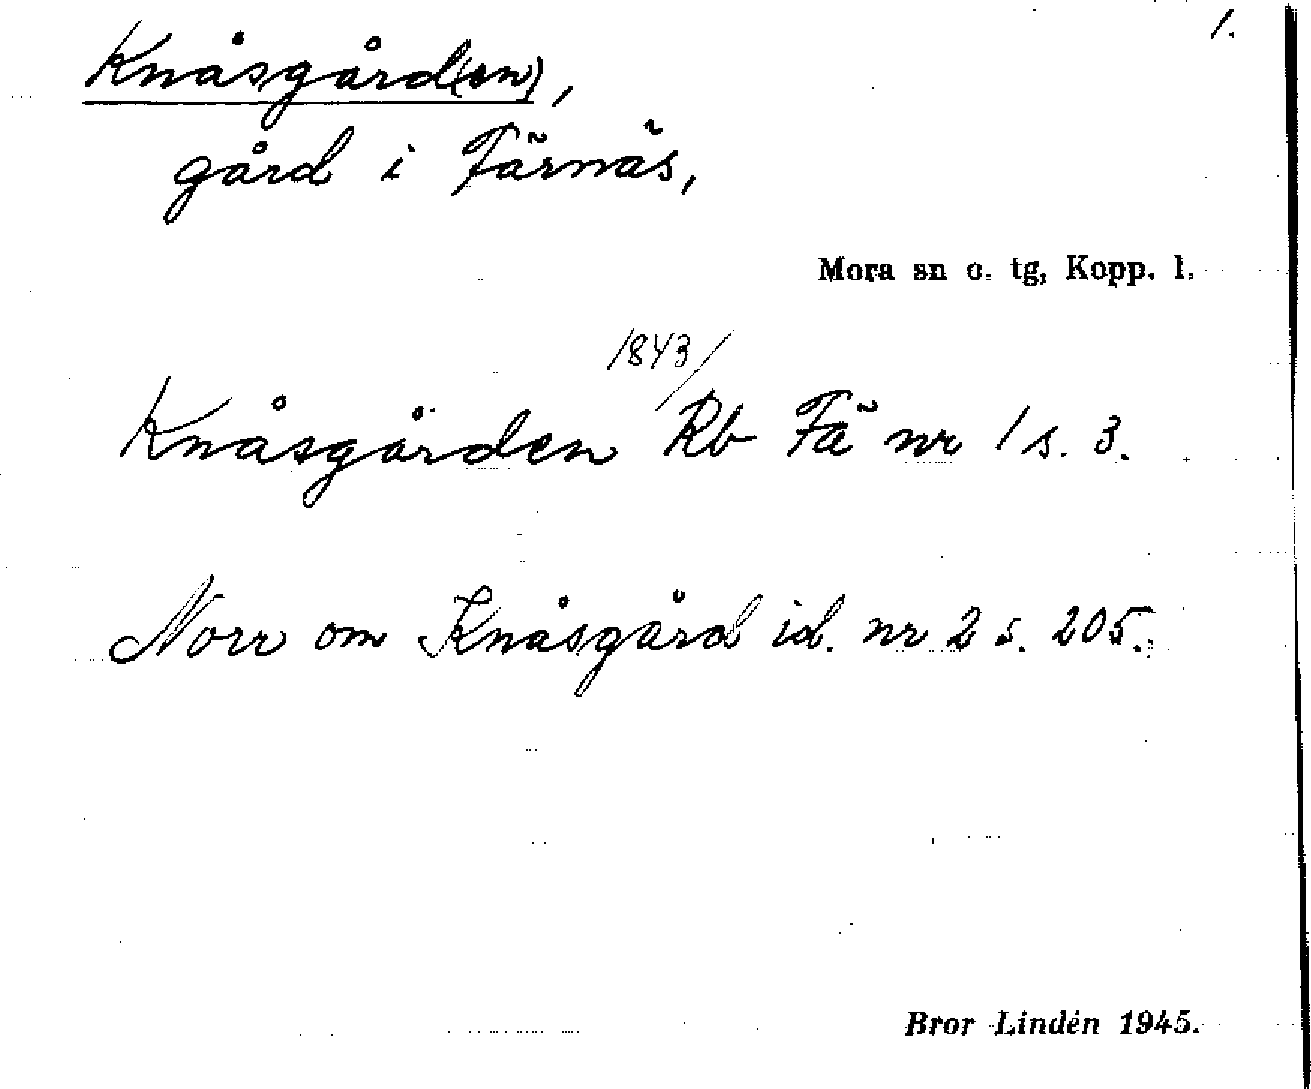 1.
Knåsgård(en),
gård i Färnäs,
Mora sn o. tg, Kopp. l.
1843/
Knåsgården Rb Fä nr 1 s. 3.
Norr om Knåsgård id. nr 2 s. 205.
Bror Lindén 1945.